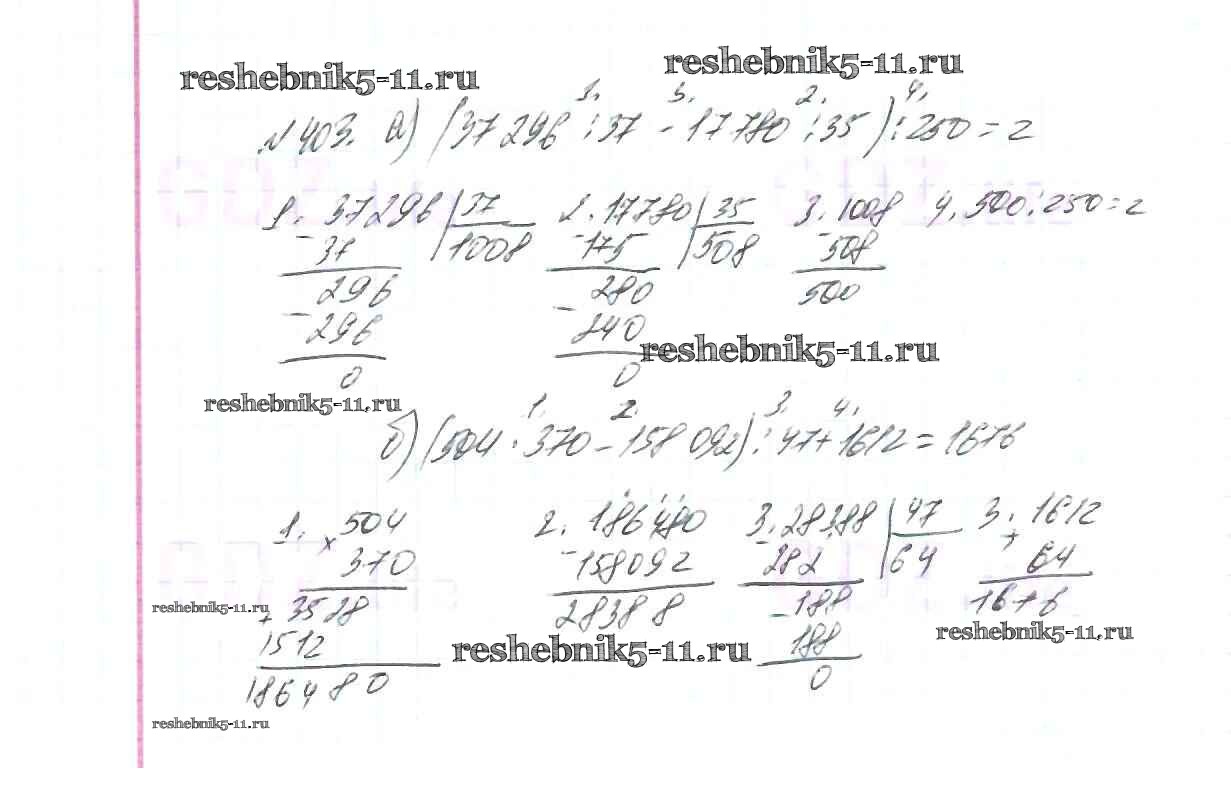 reshebnik5-11.ru reshebnik5-11.ru
1. 3. 2. 4.
№403. а) (37296 : 37 - 17780 : 35) : 250 = 2
1. 37296 37 2. 17780 35 3. 1008 4. 500 : 250 = 2
- 37 1008 - 175 508 - 508
296 280 500
- 296 - 280
0 0
reshebnik5-11.ru
reshebnik5-11.ru
1. 2. 3. 4.
б) (504 · 370 - 158 092) : 47 + 1612 = 1676
1. 504 2. 186480 3. 28388 47 3. 1612
x 370 - 158092 - 282 64 + 64
+ 3528 28388 - 188 1676
reshebnik5-11.ru
1512 188
reshebnik5-11.ru
reshebnik5-11.ru
186480 0
reshebnik5-11.ru